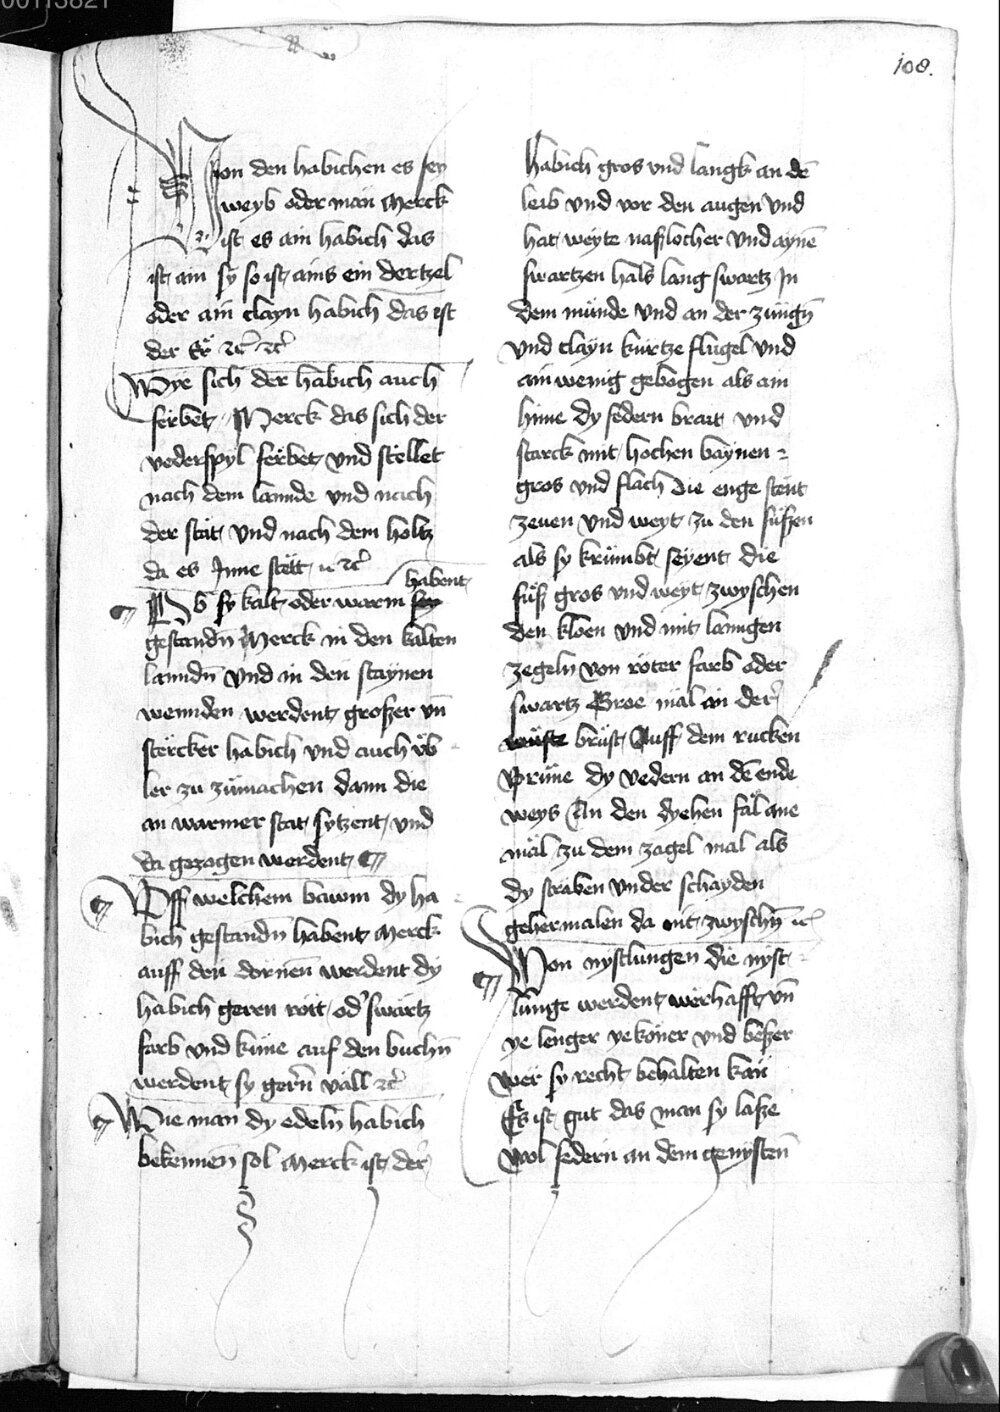 108.
Von den habichen es sey
weyb oder man Merck
ist es ain habich das
ist ain sy so ist ains ein dertzel
oder ain clayn habich das ist
der Er ꝛc̄ ꝛc̄
Wye sich der habich auch
ferbet Merck das sich der
vederspyl ferbet vnd stellet
nach dem lannde vnd nach
der stat vnd nach dem holtz
da es Inne stett ꝛc̄
habent
Ob sy kalt oder warm sey
gestandn̄ Merck in den kalten
lanndn̄ vnd in den staynen
wennden werdent großer vn̄
stercker habich vnd auch vb
ler zu zumachen dann die
an warmer stat sytzent vnd
da gezogen werdent
Vff welchem bawm dy ha
bich gestandn̄ habent Merck
auff den dornen̄ werdent dy
habich geren rott od' swartz
farb vnd küne auf den buchn̄
werdent sy gern̄ vall ꝛc̄
Wie man dy edeln habich
bekennen̄ sol Merck ist der
habich gros vnd langk an dē
leib vnd vor den augen vnd
hat weyte naßlocher vnd aynē
swartzen hals lang swartz In
dem münde vnd an der züngn̄
vnd clayn kurtze flugel vnd
ain wenig gebogen als ain
hüne dy federn brait vnd
starck mit hochen baynen
gros vnd flach die enge stent
zeuen vnd weyt zu den füßen
als sy krümbt seyent die
füß gros vnd weyt zwyschen
den kloen vnd mit lanngen
zegeln von roter farb oder
swartz Groe mäl an der
brüst Auff dem rucken
Prüne dy vedern an dē ende
weys An den dyehen fal ane
mäl zu dem zagel mal als
dy straben vnder schayden
geher malen da mit zwyschn̄ ꝛc̄
Von nystlungen die nyst
lünge werdent werhafft vn̄
ye lenger ye köner vnd beßer
wer sy recht behalten kan
Es ist gut das man sy laße
wol federn an dem genysten̄